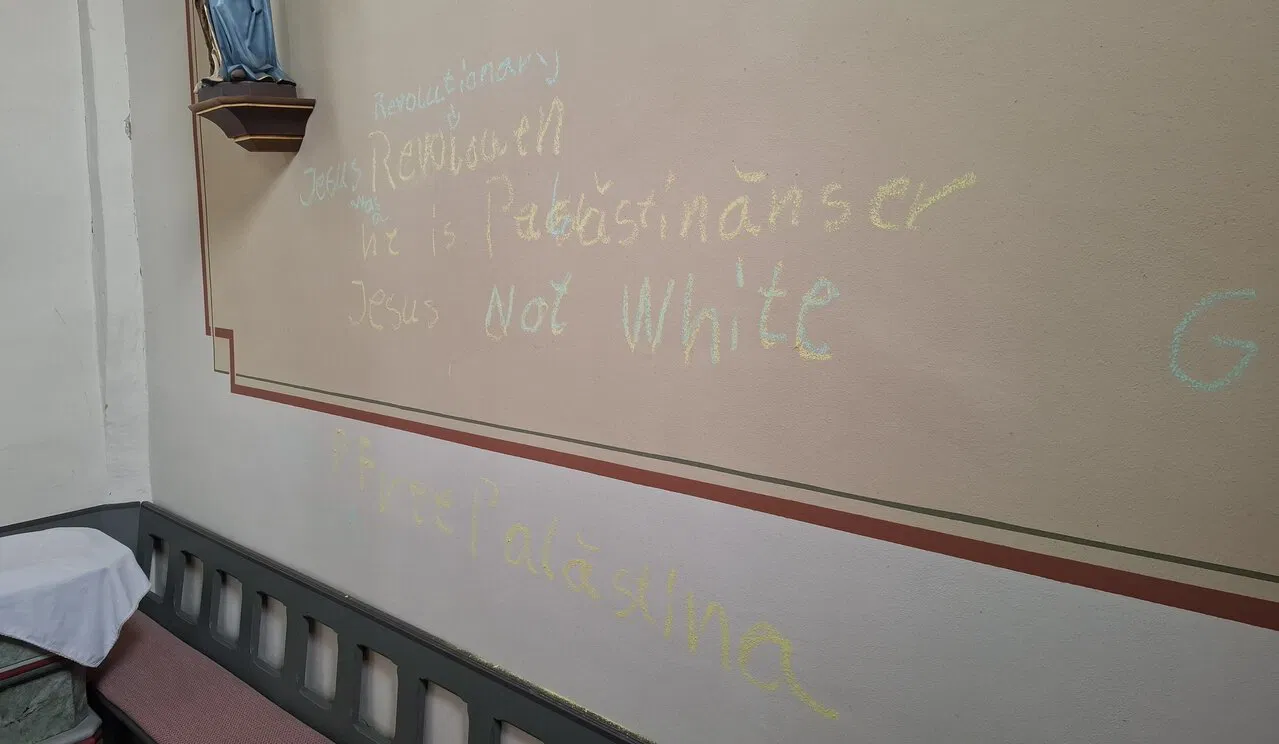 Revolutionary
Jesus
was a
he is Palästinänser
Jesus Not White
G
Free Palästina